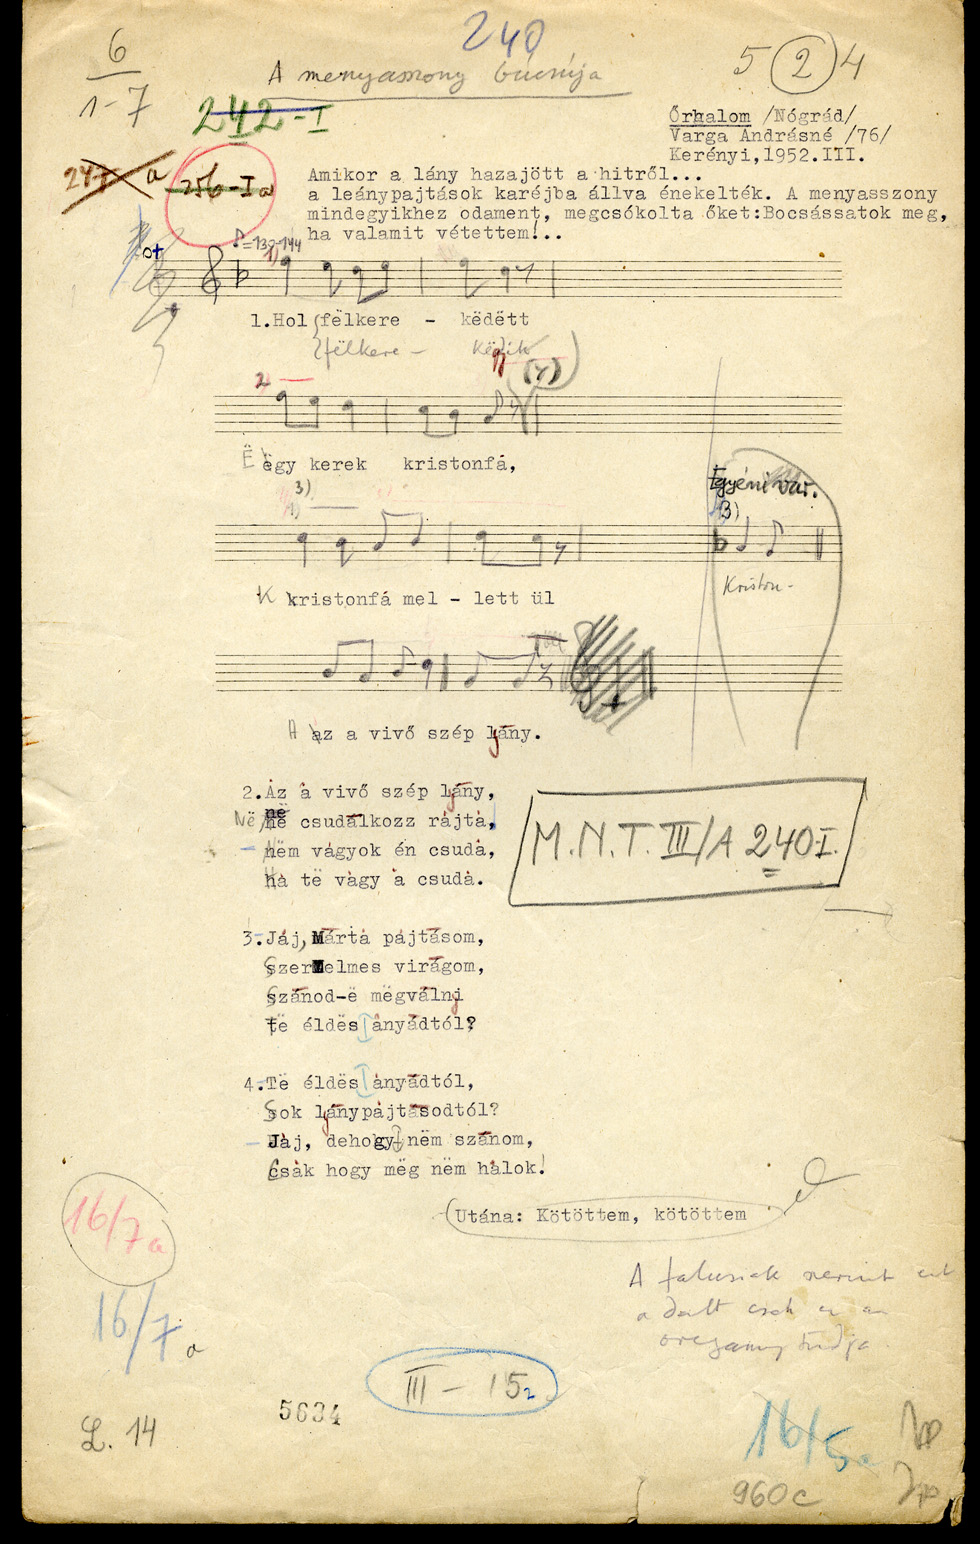 6
1-7
240
5 2 4
A menyasszony búcsúja
242-I
Őrhalom /Nógrád/
Varga Andrásné /76/
Kerényi,1952.III.
247 a
256-Ia
Amikor a lány hazajött a hitről...
a leánypajtások karéjba állva énekelték. A menyasszony
mindegyikhez odament, megcsókolta őket:Bocsássatok meg,
ha valamit vétettem!..
♪=139-144
1)
1.Hol fëlkere - këdëtt
fëlkere -
2)
Ë ëgy kerek kristonfá,
3)
Egyéni var.
3)
Kriston-
K kristonfá mel - lett ül
A az a vivő szép lyány.
2.Áz á vivő szép lyány,
në
Në në csudálkozz rájtá,
nëm vágyok én csudá,
há të vágy á csudá.
M.N.T. III/A 240 I.
3.Jáj, Mártá pájtásom,
szerelmes virágom,
szánod-ë mëgválnj
të éldës ányádtól?
4.Të éldës ányádtól,
sok lyánypájtásodtól?
Jáj, dehogy nëm szánom,
csák hogy mëg nëm hálok!
Utána: Kötöttem, kötöttem
A falusiak szerint ezt
a dalt csak ez az
öregasszony tudja
16/7a
16/7 a
III - 15 2
5634
L. 14
16/5a
960c